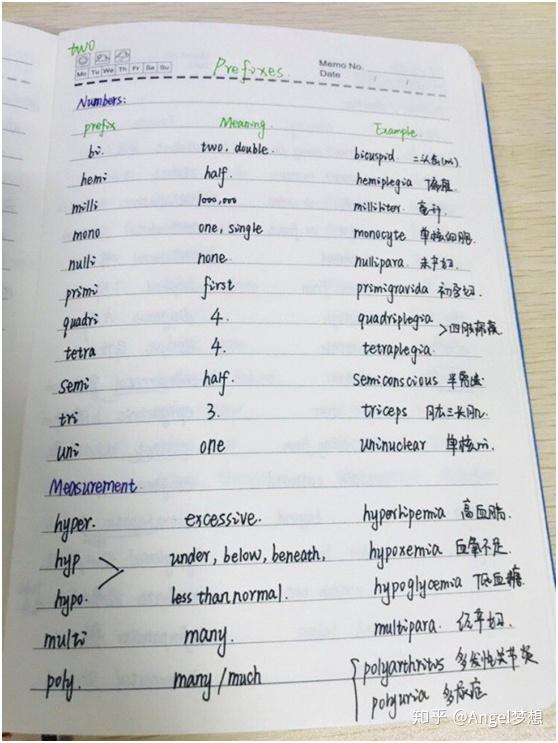 two
Mo Tu We Th Fr Sa Su
Prefixes.
Memo No.
Date / /
Numbers:
prefix Meaning Example
bi. two, double. bicuspid 二头的(ni).
hemi half. hemiplegia 偏瘫
milli 1000,000 milliliter 毫升.
mono one, single monocyte 单核细胞.
nulli none. nullipara. 未产妇.
primi first primigravida 初孕妇.
quadri 4. quadriplegia
> 四肢麻痹
tetra 4. tetraplegia.
semi half. semiconscious 半昏迷
tri 3. triceps 肱三头肌.
uni one uninuclear 单核的.
Measurement.
hyper. excessive. hyperlipemia 高血脂.
hyp under, below, beneath, hypoxemia 血氧不足.
hypo. less than normal. hypoglycemia 低血糖.
multi many. multipara. 经产妇.
poly. many/much polyarthritis 多发性关节炎
polyuria 多尿症
知乎 @Angel梦想